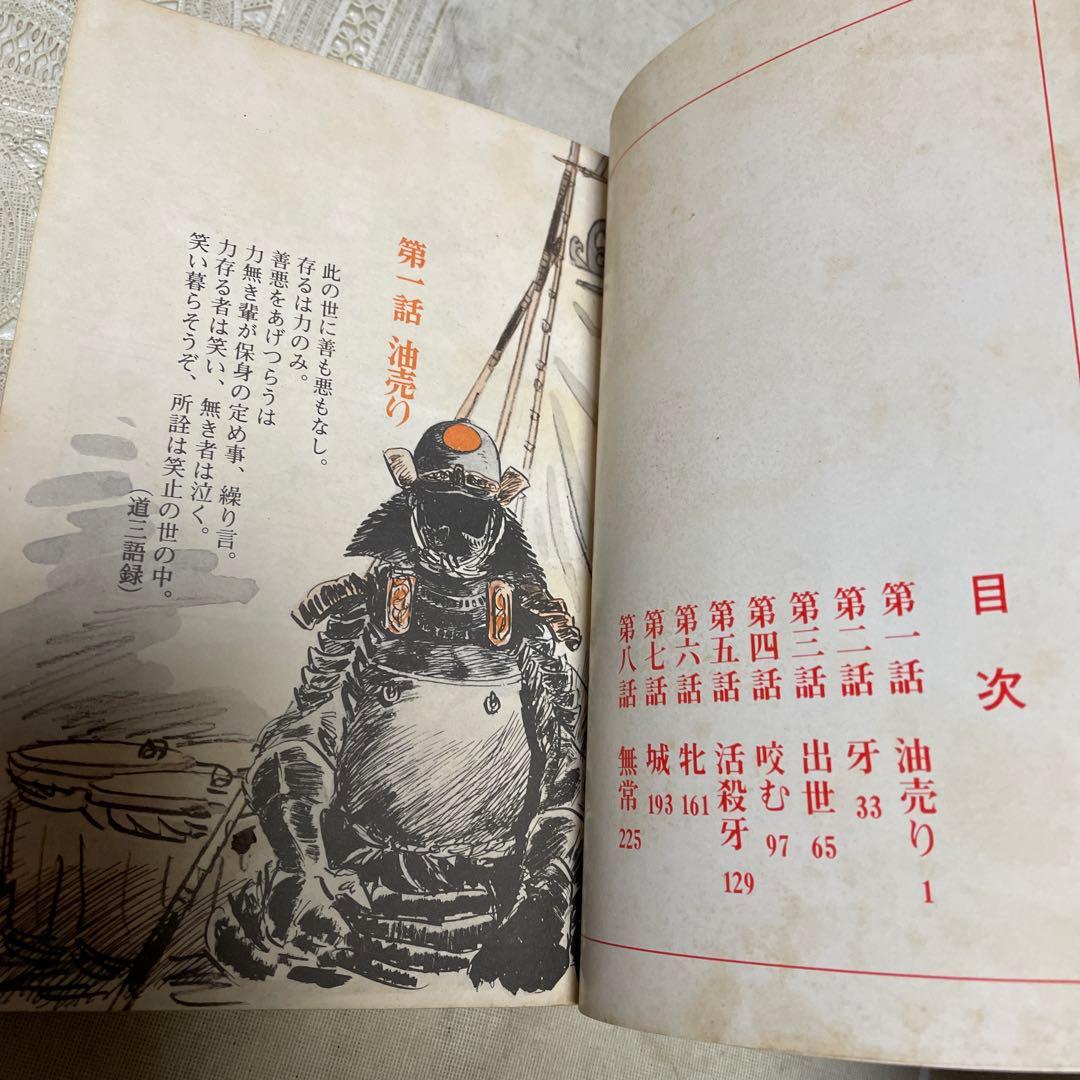 目次
第一話 油売り 1
第二話 牙 33
第三話 出世 65
第四話 咬む 97
第五話 活殺牙 129
第六話 牝 161
第七話 城 193
第八話 無常 225
第一話 油売り
此の世に善も悪もなし。
存るは力のみ。
善悪をあげつらうは
力無き輩が保身の定め事、繰り言。
力存る者は笑い、無き者は泣く。
笑い暮らそうぞ、所詮は笑止の世の中。
（道三語録）